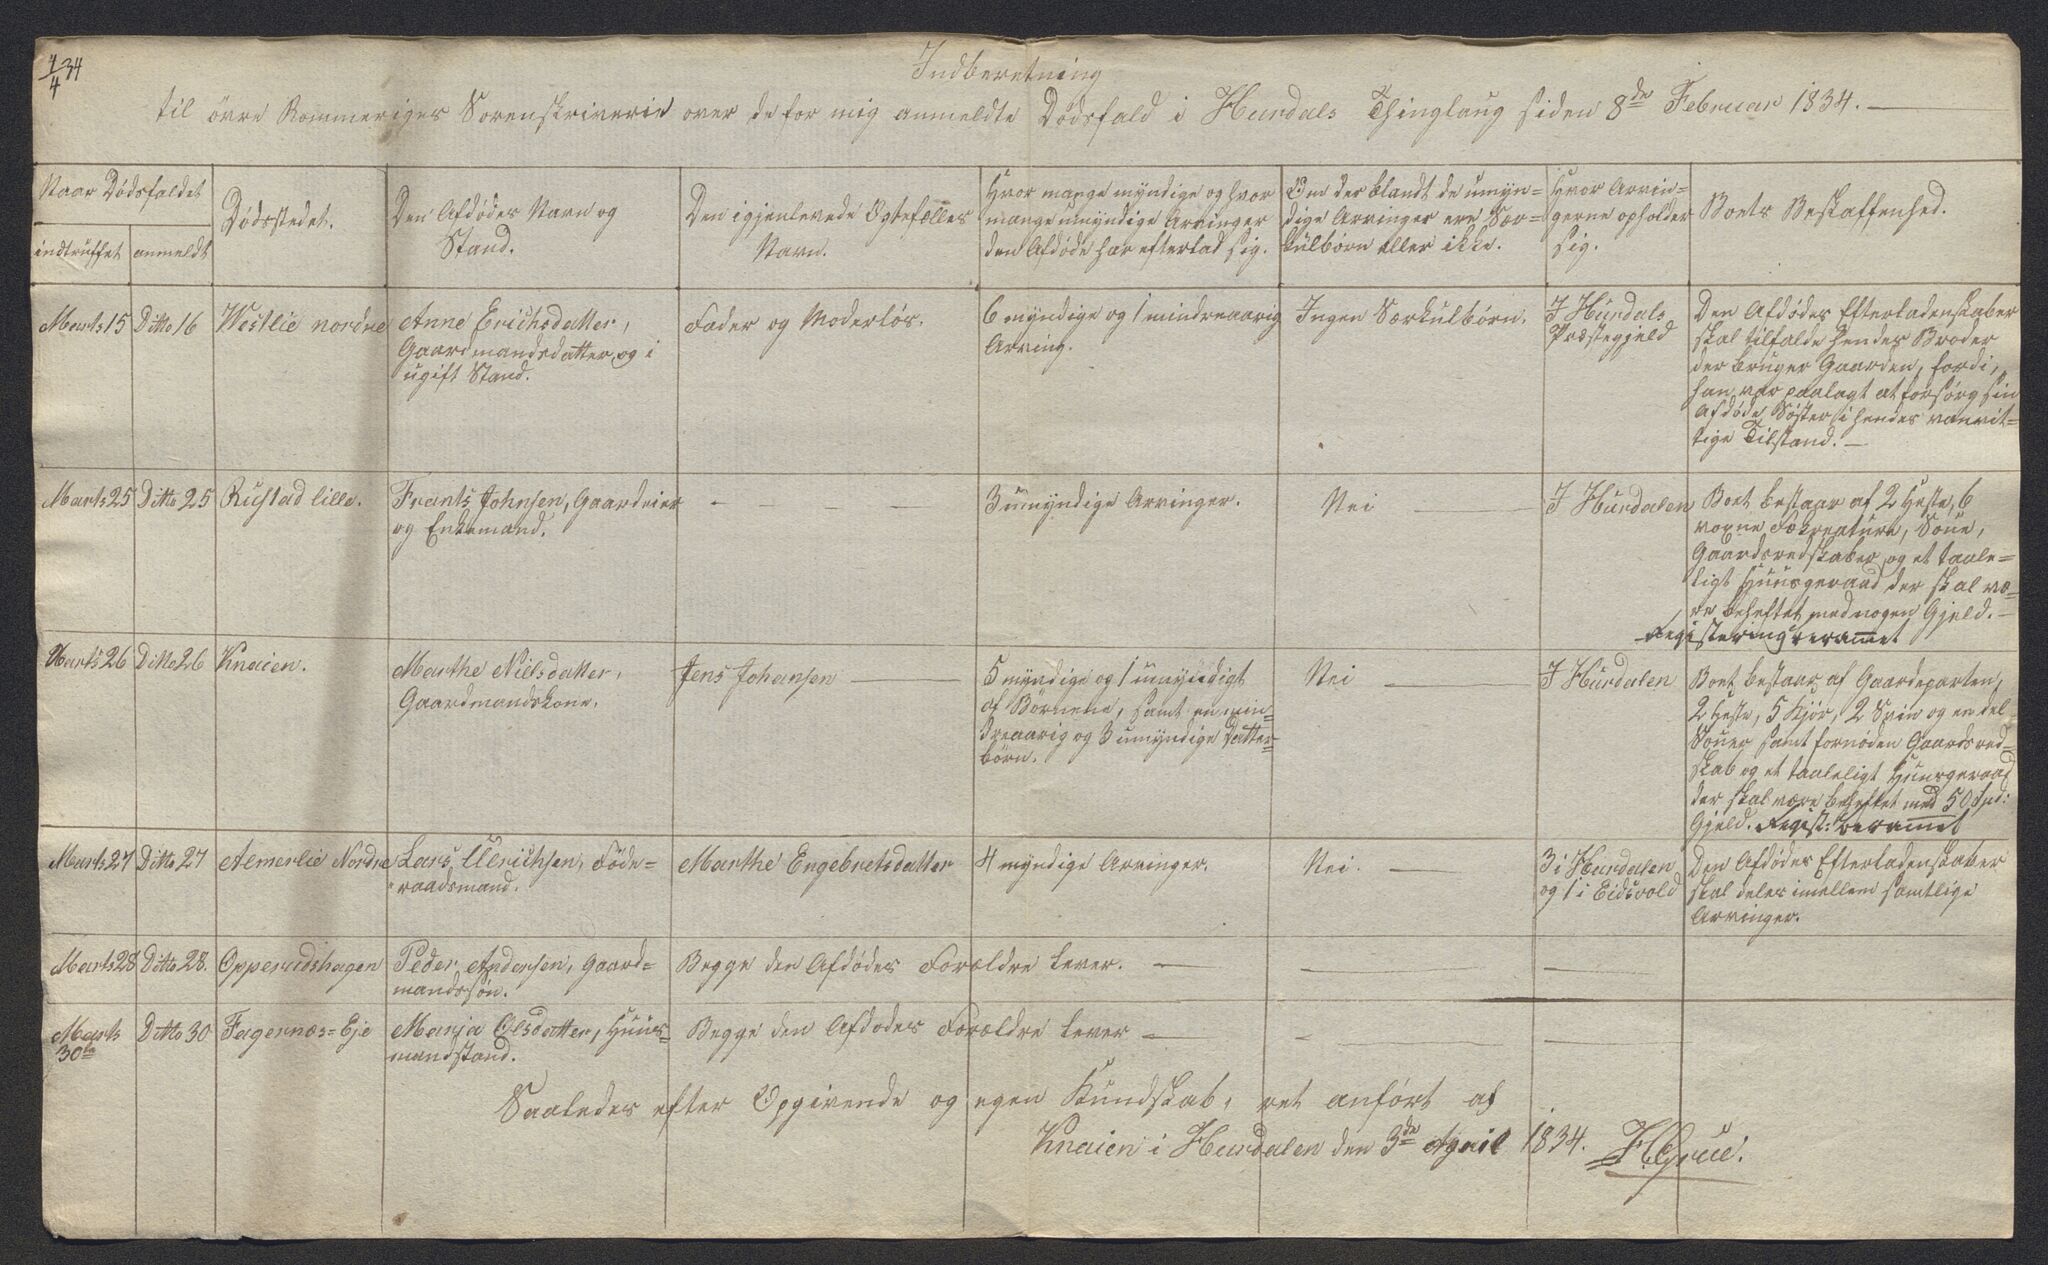 4/4 34
Indberetning
til övre Rommeriges Sorenskriverie over de for mig anmeldte Dödsfald i Hurdals Thinglaug siden 8de Februar 1834.
Naar Dödsfaldet
indtruffet
anmeldt
Dödsstedet.
Den Afdödes Navn og
Stand.
Den igjenlevede Egtefælles
Navn.
Hvor mange myndige og hvor
mange umyndige Arvinger
den Afdöde har efterlad sig.
Om der blandt de umyn=
dige Arvinger ere Sær=
kulbörn eller ikke.
Hvor Arvin=
gerne opholder
sig.
Boets Beskaffenhed.
Marts 15
Ditto 16
Westlie nordre
Anne Erichsdatter,
Gaardmandsdatter, og i
ugift Stand.
Fader og Moderlös.
6 myndige og 1 mindreaarig
Arving.
Ingen Særkulbörn.
I Hurdals
Præstegjeld
Den Afdödes Efterladenskaber
skal tilfalde hendes Broder
der bruger Gaarden, fordi,
han var paalagt at forsörg sin
Afdöde Söster i hendes vanvit=
tige Tilstand. —
Marts 25
Ditto 25
Rustad lille.
Frants Johnsen, Gaardeier
og Enkemand.
— — — —
3 umyndige Arvinger.
Nei —
I Hurdalen
Boet bestaar af 2 Heste, 6
voxne Fækreature, Soue,
Gaardsredskaber og et taale=
ligt Huusgeraad der skal væ=
re beheftet med nogen Gjeld. —
Registering berammet
Marts 26
Ditto 26
Knaien.
Marthe Nielsdatter,
Gaardmandskone.
Jens Johansen —
5 myndige og 1 umyndigt
af Börnene, samt en min=
dreaarig og 3 umyndige Datter=
börn.
Nei —
I Hurdalen
Boet bestaar af Gaardeparten,
2 Heste, 5 Kjör, 2 Svin og en del
Souer samt fornöden Gaardsred=
skab og et taaleligt Huusgeraad
der skal være beheftet med 50 Spd:
Gjeld. Regist: berammet
Marts 27
Ditto 27
Almerlie Nordre
Lars Ulrichsen, Föde=
raadsmand.
Marthe Engebretsdatter
4 myndige Arvinger.
Nei. —
3 i Hurdalen
og 1 i Eidsvold
Den Afdödes Efterladenskaber
skal deles imellem samtlige
Arvinger.
Marts 28
Ditto 28.
Opperudshagen
Peder Andersen, Gaard=
mandssön.
Begge den Afdödes Forældre lever. —
Marts
30te
Ditto 30
Fagernæs=Eje
Marja Olsdatter, Huus=
mandstand.
Begge den Afdödes Forældre lever —
Saaledes efter Opgivende og egen Kundskab, ret anfört af
Knaien i Hurdalen den 3de April 1834. HGrue.